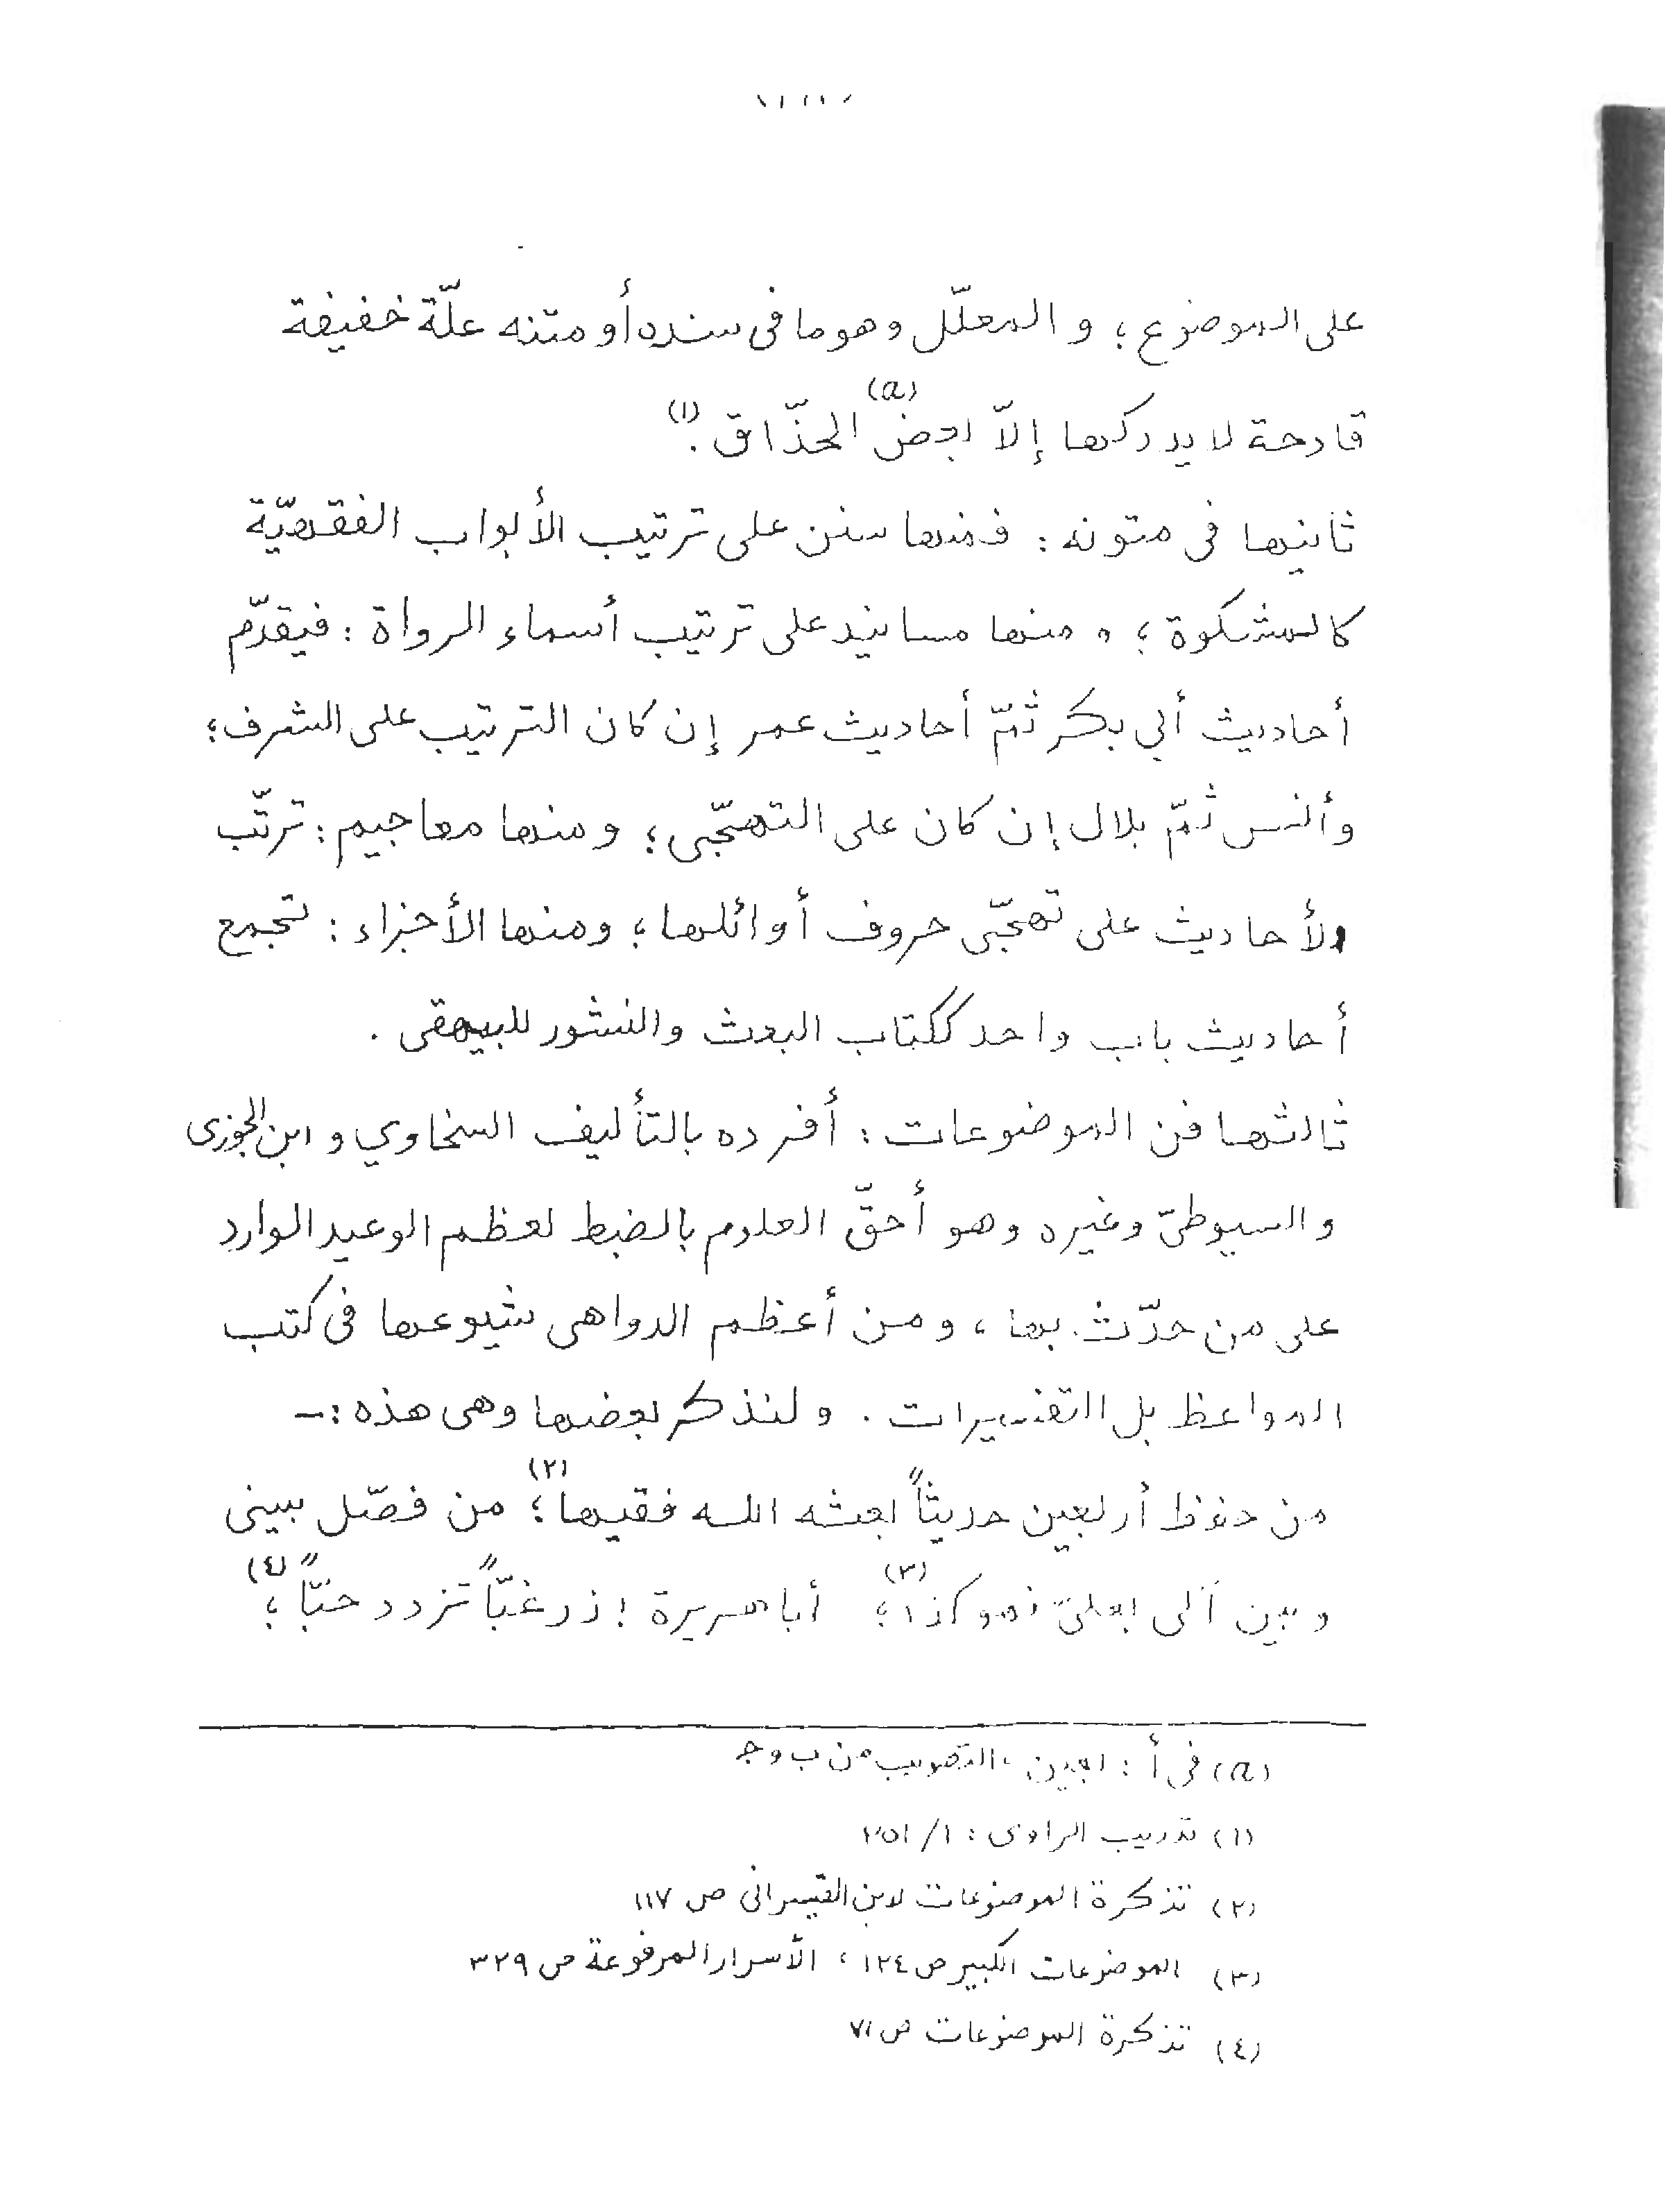 على الموضوع؛ والمعلّل وهو ما فى سنده أو متنه علّة خفيفة
قادحة لا يدركها إلاّ بعضُ (a) الحذّاق. (١)
ثانيها فى متونه: فمنها سنن على ترتيب الأبواب الفقهيّة
كالمشكوة؛ ومنها مسانيد على ترتيب أسماء الرواة: فيقدّم
أحاديث أبي بكر ثمّ أحاديث عمر إن كان الترتيب على الشرف؛
وأنس ثمّ بلال إن كان على التهجّى؛ ومنها معاجيم: ترتّب
الأحاديث على تهجّى حروف أوائلها؛ ومنها الأجزاء: تجمع
أحاديث باب واحد ككتاب البعث والنشور للبيهقى.
ثالثها فن الموضوعات: أفرده بالتأليف السخاوي وابن الجوزى
والسيوطىّ وغيره وهو أحقّ العلوم بالضبط لعظم الوعيد الوارد
على من حدّث بها، ومن أعظم الدواهى شيوعها فى كتب
المواعظ بل التفسيرات. ولنذكر بعضها وهى هذه:–
من حفظ أربعين حديثاً بعثه الله فقيها؛ (٢) من فصّل بينى
وبين آلى بعلىّ فهو كذا؛ (٣) أبا هريرة! زر غبّاً تزدد حبّاً؛ (٤)
(a) فى أ: بعين، التصويب من ب و جـ
(١) تدريب الراوى: ١/٢٥١
(٢) تذكرة الموضوعات لابن القيسرانى ص ١١٧
(٣) الموضوعات الكبير ص ١٢٤، الأسرار المرفوعة ص ٣٢٩
(٤) تذكرة الموضوعات ص ٧١